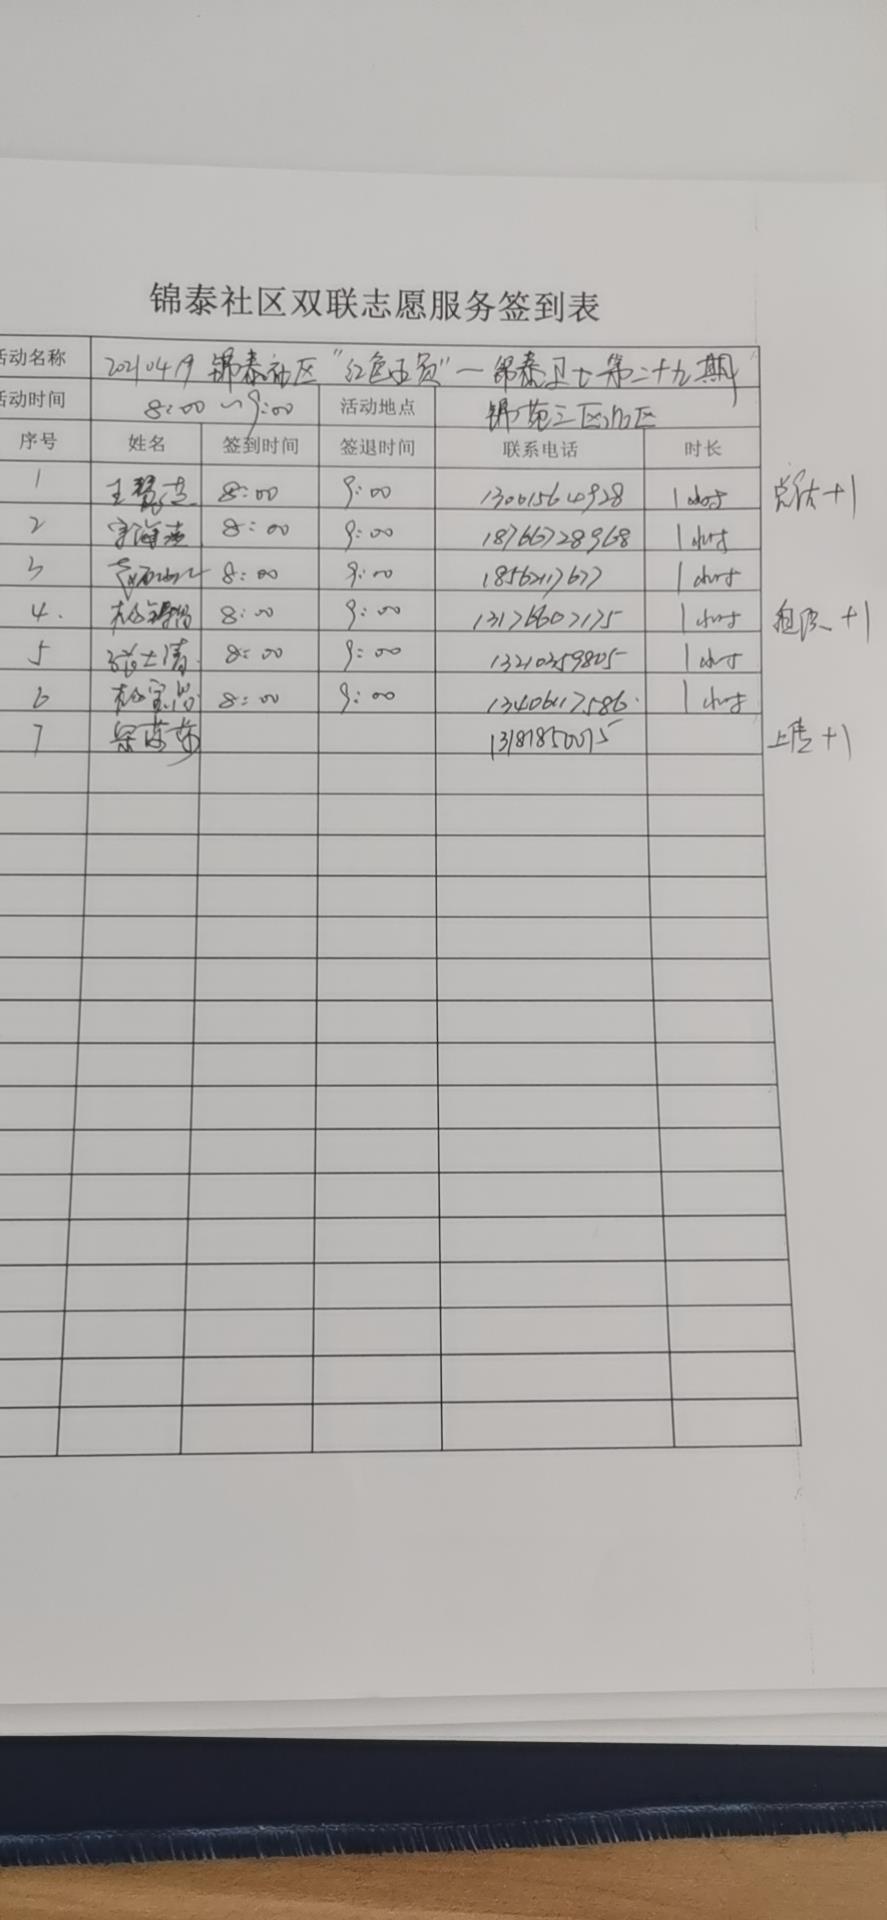 锦泰社区双联志愿服务签到表
活动名称 20210419 锦泰社区“红色五员”一锦泰卫士第二十九期
活动时间 8:00~9:00 活动地点 锦苑三区北区
序号 姓名 签到时间 签退时间 联系电话 时长
1 王慧 8:00 9:00 13001564928 1小时 +1
2 宇海燕 8:00 9:00 18766728968 1小时
3 8:00 9:00 1小时
4. 8:00 9:00 13176607175 1小时 +1
5 8:00 9:00 13210359805 1小时
6 8:00 9:00 13406117586 1小时
7 13181850075 上传+1